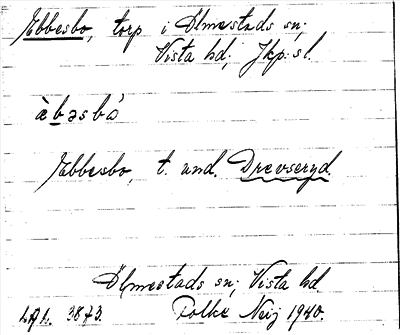 Ebbesbo, torp i Ölmestads sn;
Vista hd; Jkp:s l.
àbəsbò
Ebbesbo, t. und. Drevseryd.
Ölmestads sn; Vista hd.
L.A.L. 3873. Folke Neij 1940.